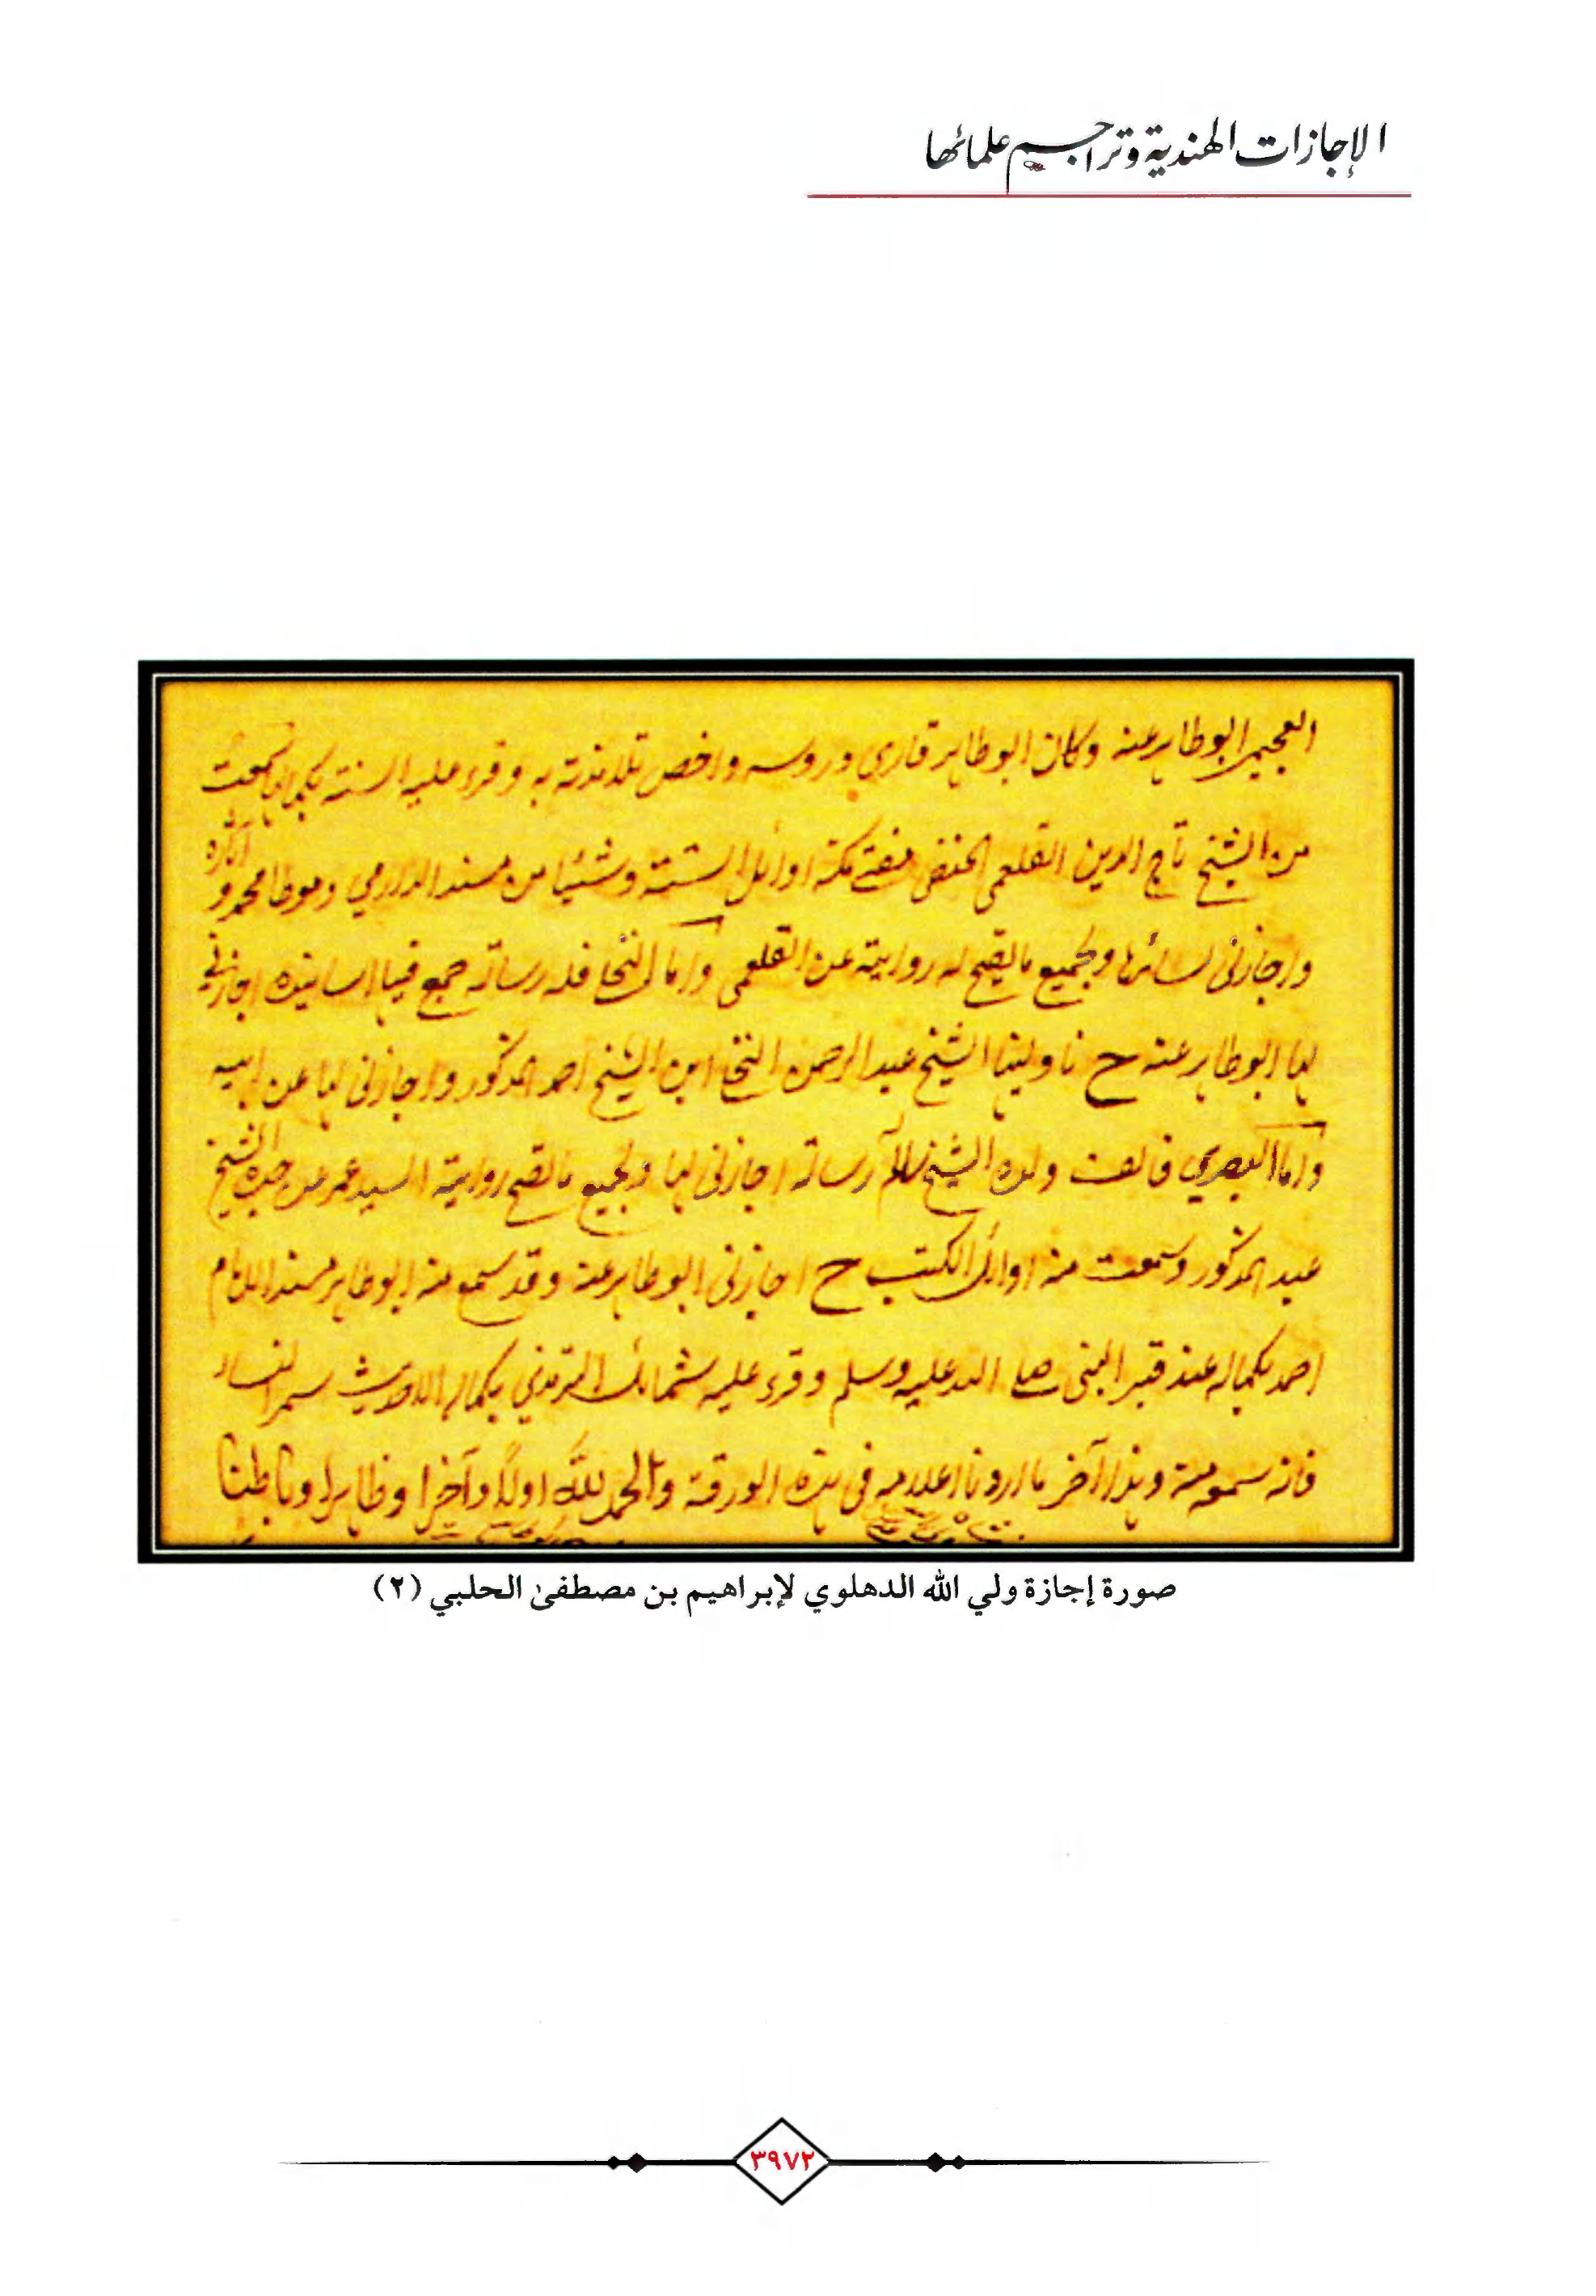 الإجازات الهندية وتراجيم علمائها
العجيمي ابو طاهر عنه وكان ابو طاهر قاري دروسه واخص تلامذته به وقرء عليه الستة بكمالها سمعت
من الشيخ تاج الدين القلعي الحنفي مفتي مكة اوائل الستة وشيئا من مسند الدارمي وموطا محمد و آثاره
واجازني لسائرها ولجميع ما تصح له روايته عن القلعي واما النخلي فله رسالة جمع فيها اسانيده اجازني
لها ابو طاهر عنه ح ناولنيها الشيخ عبد الرحمن النخلي ابن الشيخ احمد المذكور واجازني لها عن ابيه
واما البصري فالف ولده الشيخ سالم رسالة اجازني لها ولجميع ما تصح روايته السيد عمر عن جده الشيخ
عبد المذكور وسمعت منه اوائل الكتب ح اجازني ابو طاهر عنه وقد سمع منه ابو طاهر مسند الامام
احمد بكماله عند قبر النبي صلى الله عليه وسلم وقرء عليه شمائل الترمذي بكمالها الا حديث سمر النساء
فانه سمعه منه وهذا آخر ما اردنا اعلامه في هذه الورقة والحمد لله اولا وآخرا وظاهرا وباطنا
صورة إجازة ولي الله الدهلوي لإبراهيم بن مصطفىٰ الحلبي (٢)
٣٩٧٢